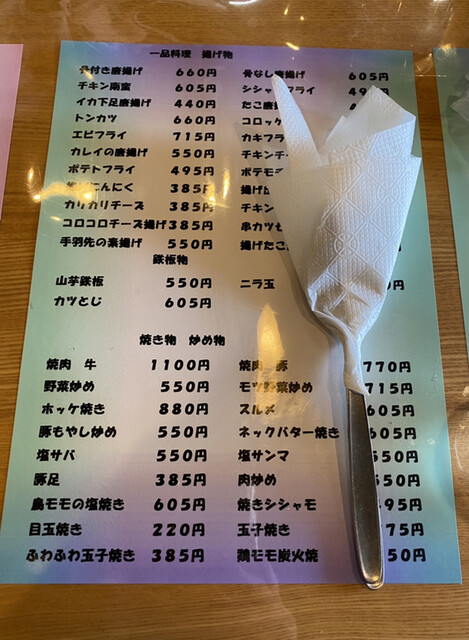 一品料理 揚げ物
骨付き唐揚げ 660円 骨なし唐揚げ 605円
チキン南蛮 605円 シシャモフライ
イカ下足唐揚げ 440円 たこ唐揚げ
トンカツ 660円 コロッケ
エビフライ 715円 カキフライ
カレイの唐揚げ 550円 チキンチ
ポテトフライ 495円 ポテモチ
にんにく 385円 揚げ
カリカリチーズ 385円 チキン
コロコロチーズ揚げ 385円 串カツ
手羽先の素揚げ 550円 揚げたこ
鉄板物
山芋鉄板 550円 ニラ玉 0円
カツとじ 605円
焼き物 炒め物
焼肉 牛 1100円 焼肉 豚 770円
野菜炒め 550円 モツ野菜炒め 715円
ホッケ焼き 880円 スルメ 605円
豚もやし炒め 550円 ネックバター焼き 605円
塩サバ 550円 塩サンマ 550円
豚足 385円 肉炒め 550円
鳥モモの塩焼き 605円 焼きシシャモ 495円
目玉焼き 220円 玉子焼き 75円
ふわふわ玉子焼き 385円 鶏モモ炭火焼 50円